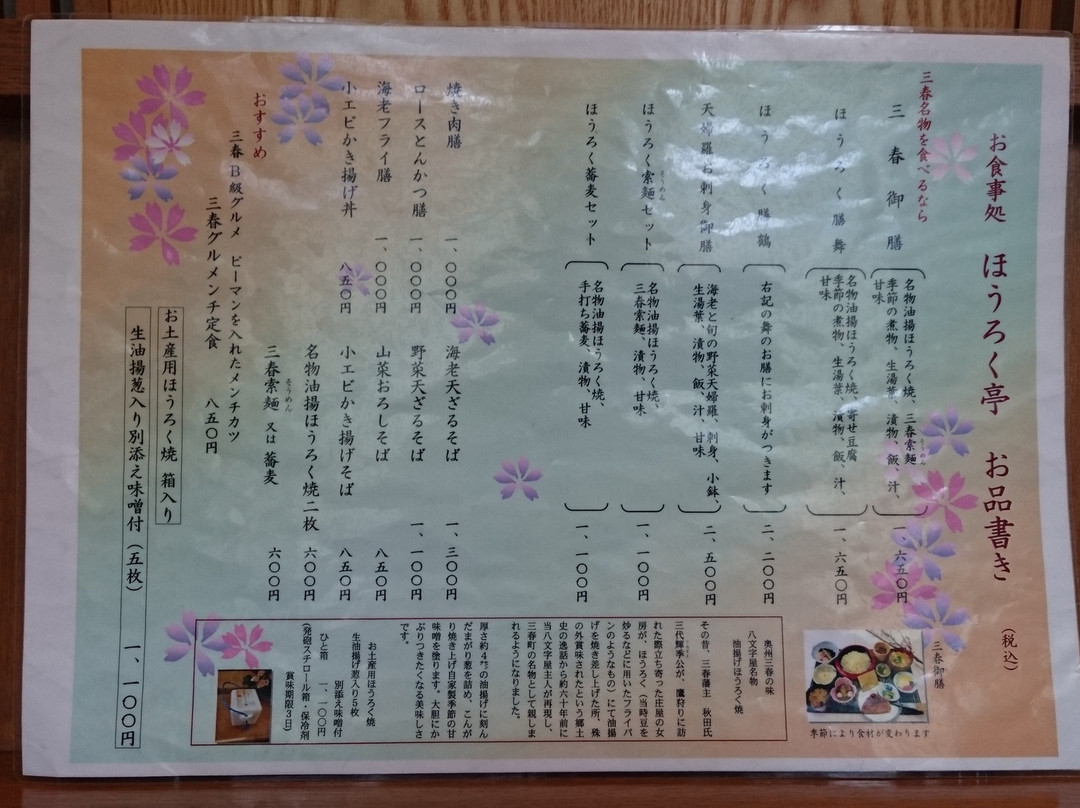 お食事処 ほうろく亭 お品書き
(税込)
三春名物を食べるなら
三春御膳
名物油揚ほうろく焼、三春索麺
そうめん
季節の煮物、生湯葉、漬物、飯、汁、
甘味
一、六五〇円
ほうろく膳 舞
名物油揚ほうろく焼、寄せ豆腐
季節の煮物、生湯葉、漬物、飯、汁、
甘味
一、六五〇円
ほうろく膳 鶴
右記の舞のお膳にお刺身がつきます
二、二〇〇円
天婦羅お刺身御膳
海老と旬の野菜天婦羅、刺身、小鉢、
生湯葉、漬物、飯、汁、甘味
二、五〇〇円
ほうろく索麺セット
そうめん
名物油揚ほうろく焼、
三春索麺、漬物、甘味
一、一〇〇円
ほうろく蕎麦セット
名物油揚ほうろく焼、
手打ち蕎麦、漬物、甘味
一、一〇〇円
焼き肉膳 一、〇〇〇円
ロースとんかつ膳 一、〇〇〇円
海老フライ膳 一、〇〇〇円
小エビかき揚げ丼 八五〇円
海老天ざるそば 一、三〇〇円
野菜天ざるそば 一、一〇〇円
山菜おろしそば 八五〇円
小エビかき揚げそば 八五〇円
名物油揚ほうろく焼二枚 六〇〇円
三春索麺 又は 蕎麦 六〇〇円
そうめん
おすすめ
三春B級グルメ ピーマンを入れたメンチカツ
三春グルメンチ定食 八五〇円
お土産用ほうろく焼 箱入り
生油揚葱入り別添え味噌付(五枚) 一、一〇〇円
三春御膳
季節により食材が変わります
奥州三春の味
八文字屋名物
油揚げほうろく焼
その昔、三春藩主 秋田氏
三代輝季公が、鷹狩りに訪
れた際立ち寄った庄屋の女
房が、ほうろく(当時豆を
炒るなどに用いたフライパ
ンのようなもの)にて油揚
げを焼き差し上げた所、殊
の外賞味されたという郷土
史の逸話から約六十年前に
当八文字屋主人が再現し、
三春町の名物として親しま
れるようになりました。
厚さ約4㌢の油揚げに刻ん
だまがり葱を詰め、こんが
り焼き上げ自家製季節の甘
味噌を塗ります。大胆にか
ぶりつきたくなる美味しさ
です。
お土産用ほうろく焼
生油揚げ葱入り5枚
別添え味噌付
ひと箱 一、一〇〇円
(発砲スチロール箱・保冷剤
賞味期限3日)